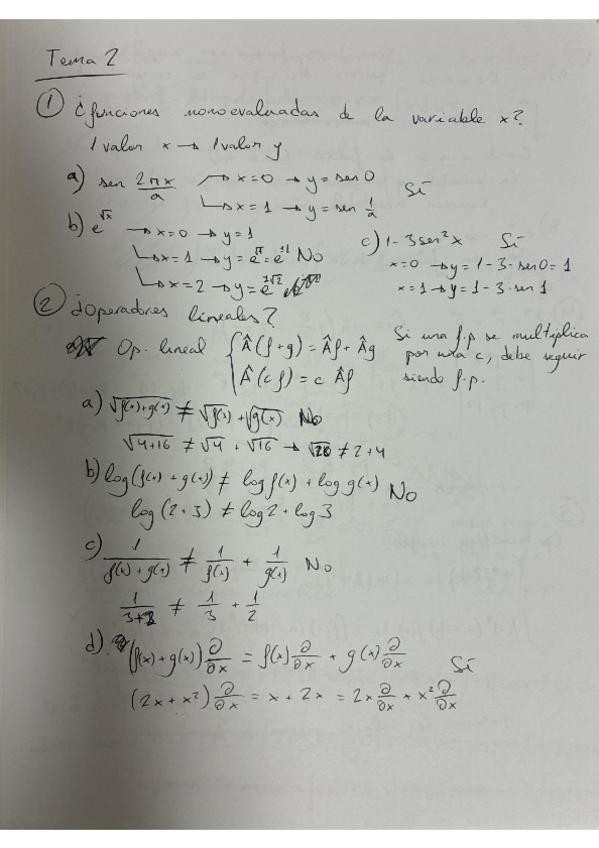 Tema 2
① ¿funciones monoevaluadas de la variable x?
1 valor x → 1 valor y
a) sen 2πx/a → x=0 → y = sen 0 Sí
↳ x=1 → y = sen 1/a
b) e^√x → x=0 → y=1
↳ x=1 → y = e^√1 = e^±1 No
↳ x=2 → y = e^±√2
c) 1-3sen²x Sí
x=0 → y = 1-3·sen0 = 1
x=1 → y = 1-3·sen 1
② ¿Operadores lineales?
Op. lineal { Â(f+g) = Âf + Âg
Â(cf) = c Âf
Si una f.p se multiplica
por una c, debe seguir
siendo f.p.
a) √f(x)+g(x) ≠ √f(x) + √g(x) No
√4+16 ≠ √4 + √16 → √20 ≠ 2+4
b) log(f(x)+g(x)) ≠ log f(x) + log g(x) No
log(2+3) ≠ log2 + log3
c) 1/(f(x)+g(x)) ≠ 1/f(x) + 1/g(x) No
1/(3+2) ≠ 1/3 + 1/2
d) (f(x)+g(x)) ∂/∂x = f(x) ∂/∂x + g(x) ∂/∂x Sí
(2x+x²) ∂/∂x = x + 2x = 2x ∂/∂x + x² ∂/∂x